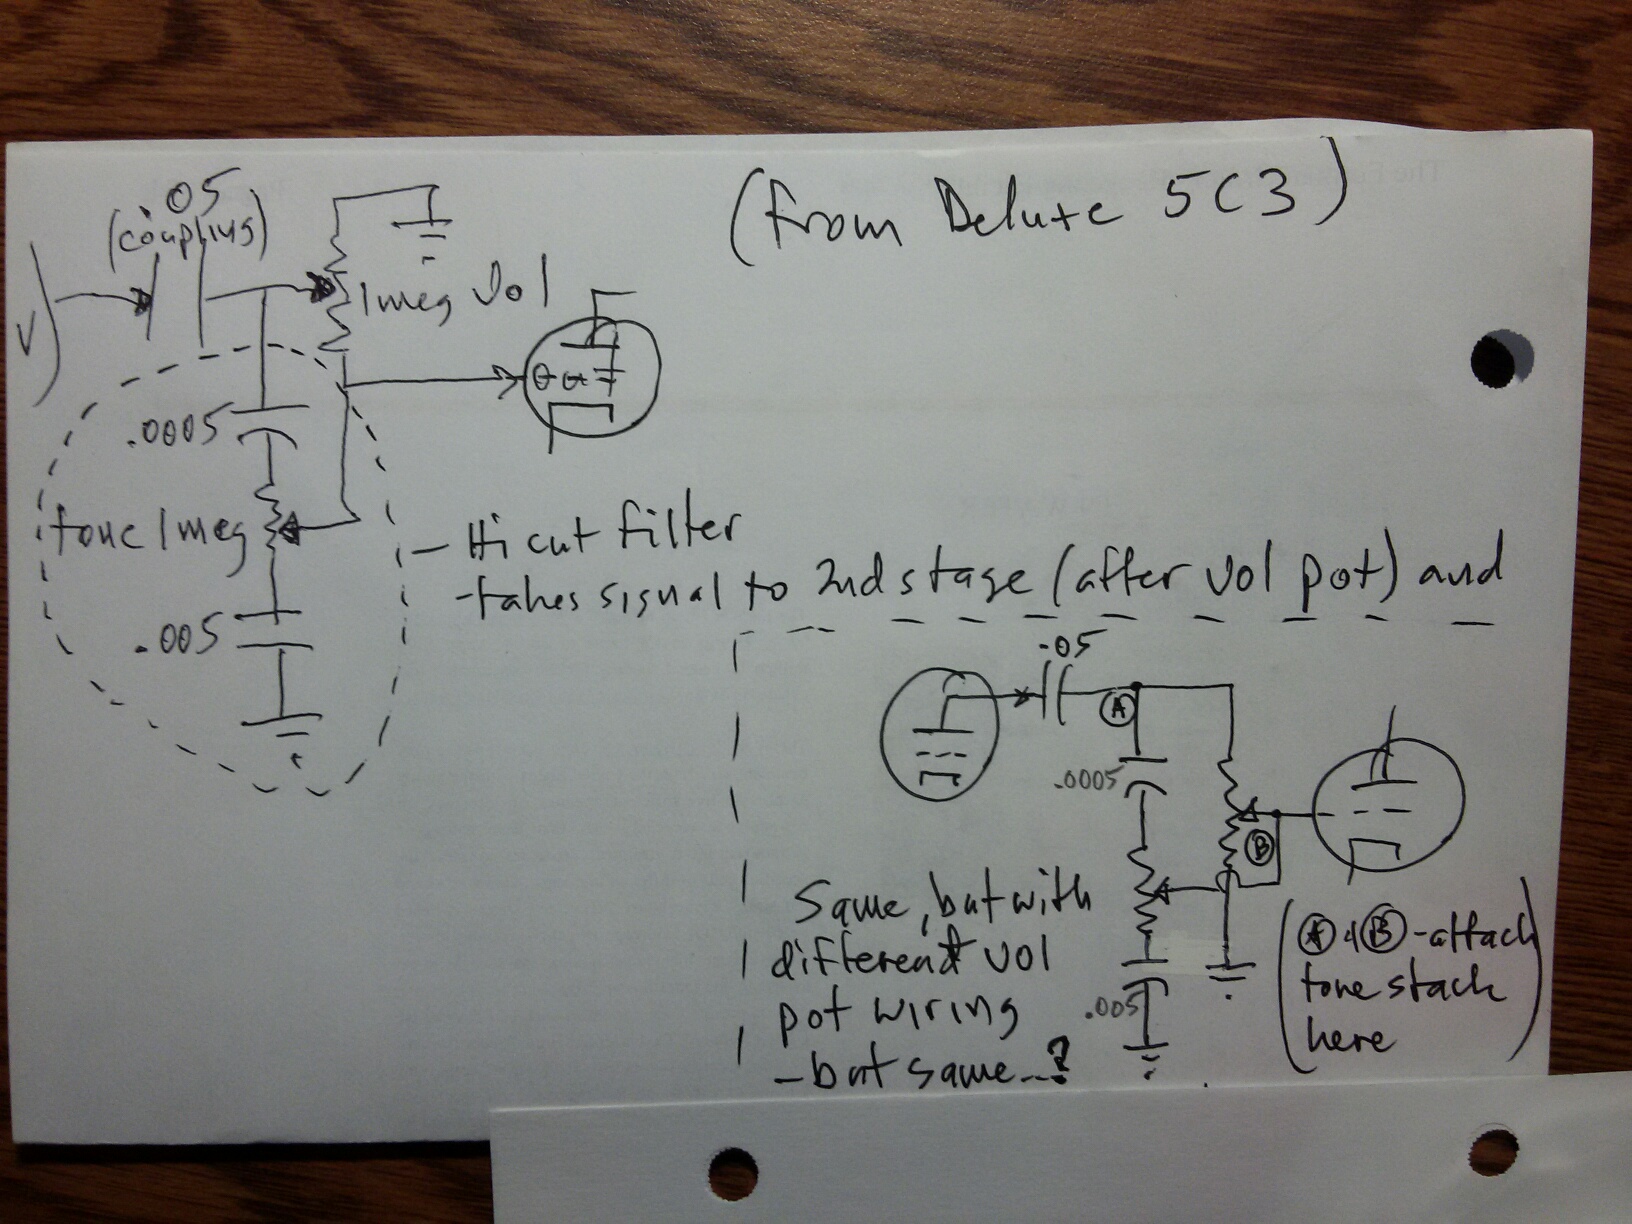 .05
(coupling)
(from Deluxe 5C3)
1meg Vol
V
.0005
tone 1meg
- Hi cut filter
- takes signal to 2nd stage (after vol pot) and
.005
.05
A
.0005
B
Same, but with
different vol
pot wiring
- but same...?
.005
(A & B - attach
tone stack
here)